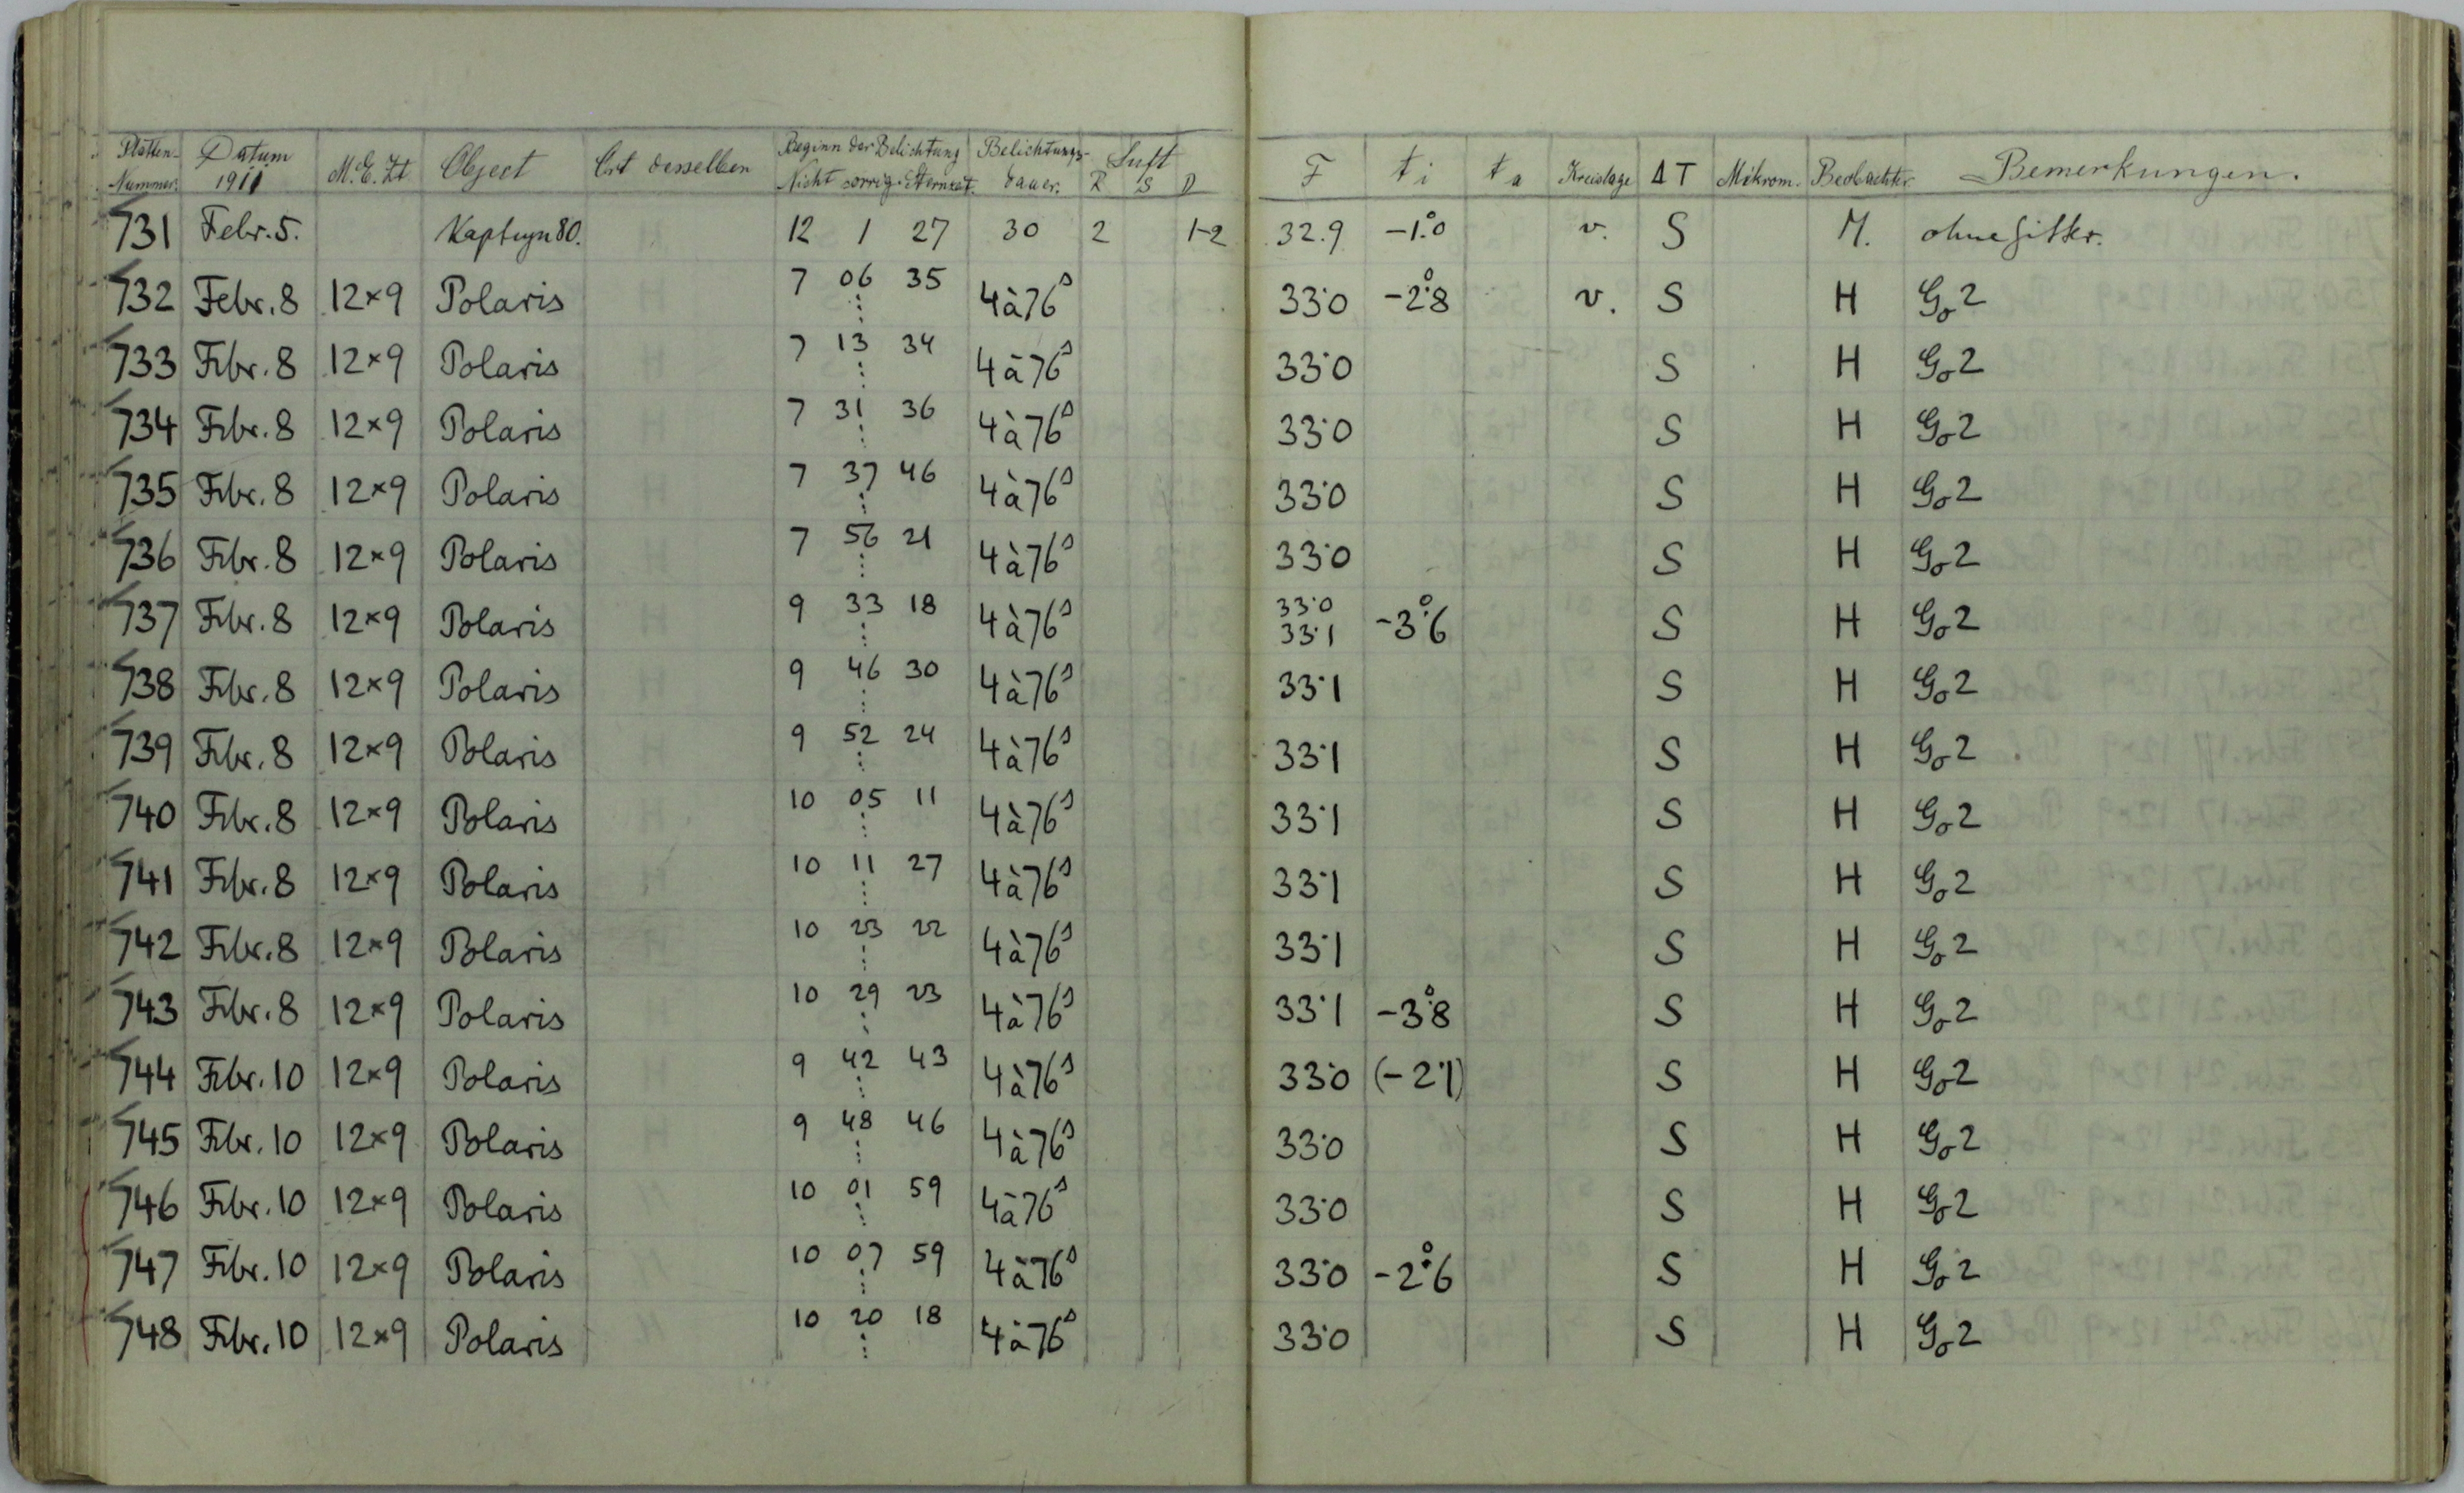 Platten- Nummer. Datum 1911 M.E.Zt Object Ort desselben Beginn der Belichtung Nicht corrig. Sternzeit. Belichtungs- dauer. Luft R S D F ti ta Kreislage ΔT Mikrom. Beobachter Bemerkungen.
731 Febr. 5. Kapteyn 80. 12 1 27 30 2 1-2 32.9 -1.°0 v. S M. ohne Gitter.
732 Febr. 8 12×9 Polaris 7 06 35 4à76s 33·0 -2.°8 v. S H Go2
733 Febr. 8 12×9 Polaris 7 13 34 4à76s 33·0 S H Go2
734 Febr. 8 12×9 Polaris 7 31 36 4à76s 33·0 S H Go2
735 Febr. 8 12×9 Polaris 7 37 46 4à76s 33·0 S H Go2
736 Febr. 8 12×9 Polaris 7 56 21 4à76s 33·0 S H Go2
737 Febr. 8 12×9 Polaris 9 33 18 4à76s 33·0 33·1 -3.°6 S H Go2
738 Febr. 8 12×9 Polaris 9 46 30 4à76s 33·1 S H Go2
739 Febr. 8 12×9 Polaris 9 52 24 4à76s 33·1 S H Go2
740 Febr. 8 12×9 Polaris 10 05 11 4à76s 33·1 S H Go2
741 Febr. 8 12×9 Polaris 10 11 27 4à76s 33·1 S H Go2
742 Febr. 8 12×9 Polaris 10 23 22 4à76s 33·1 S H Go2
743 Febr. 8 12×9 Polaris 10 29 23 4à76s 33·1 -3.°8 S H Go2
744 Febr. 10 12×9 Polaris 9 42 43 4à76s 33·0 (-2·1) S H Go2
745 Febr. 10 12×9 Polaris 9 48 46 4à76s 33·0 S H Go2
746 Febr. 10 12×9 Polaris 10 01 59 4à76s 33·0 S H Go2
747 Febr. 10 12×9 Polaris 10 07 59 4à76s 33·0 -2.°6 S H Go2
748 Febr. 10 12×9 Polaris 10 20 18 4à76s 33·0 S H Go2